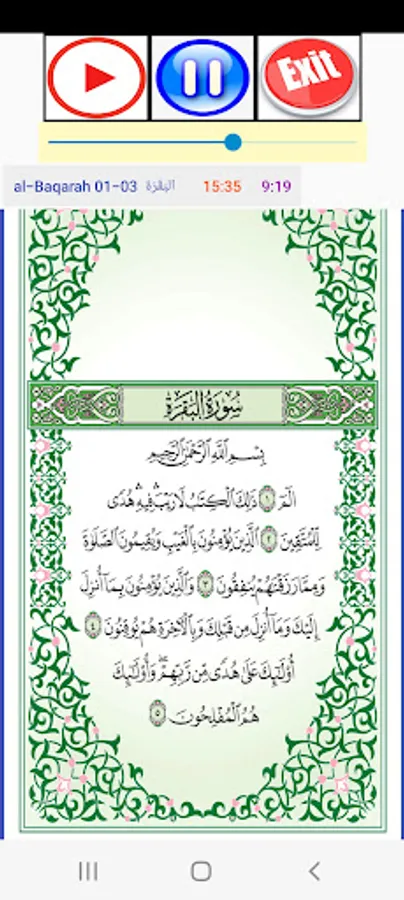 Exit
al-Baqarah 01-03 البقرة 15:35 9:19
سُورَةُ الْبَقَرَةِ
بِسْمِ اللَّهِ الرَّحْمَٰنِ الرَّحِيمِ
الٓمٓ ١ ذَٰلِكَ الْكِتَابُ لَا رَيْبَ ۛ فِيهِ ۛ هُدًى
لِّلْمُتَّقِينَ ٢ الَّذِينَ يُؤْمِنُونَ بِالْغَيْبِ وَيُقِيمُونَ الصَّلَوٰةَ
وَمِمَّا رَزَقْنَٰهُمْ يُنفِقُونَ ٣ وَالَّذِينَ يُؤْمِنُونَ بِمَا أُنزِلَ
إِلَيْكَ وَمَا أُنزِلَ مِن قَبْلِكَ وَبِالْآخِرَةِ هُمْ يُوقِنُونَ ٤
أُولَٰئِكَ عَلَىٰ هُدًى مِّن رَّبِّهِمْ ۖ وَأُولَٰئِكَ
هُمُ الْمُفْلِحُونَ ٥